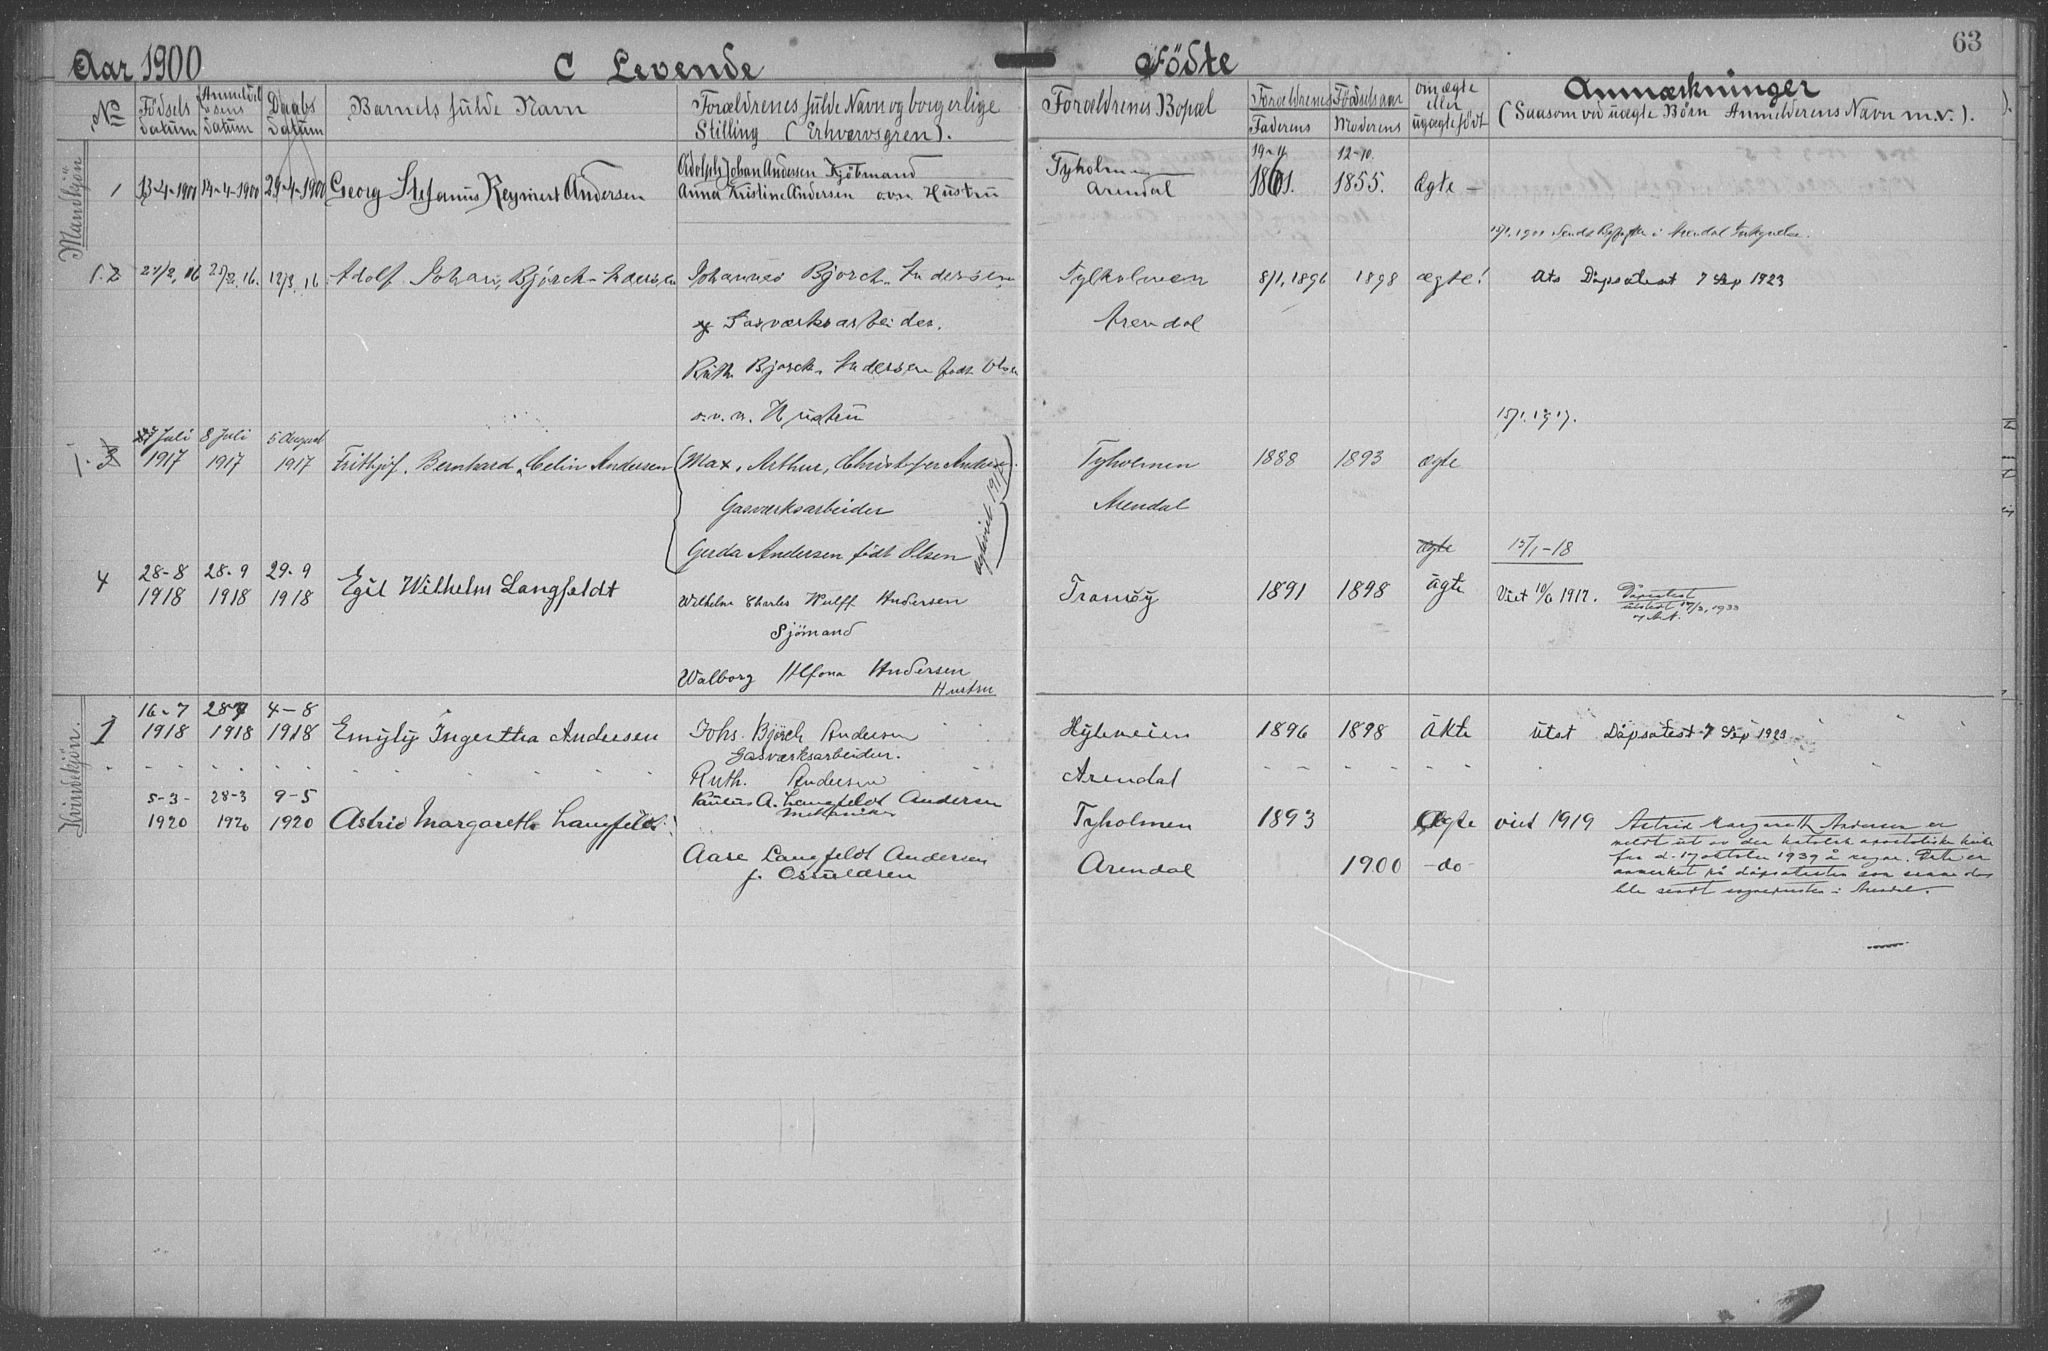 63
Aar 1900 C Levende Födte
No Födsels datum Anmeldelsens datum Daabs datum Barnets fulde Navn Forældrenes fulde Navn og borgerlige Stilling (Erhvervsgren). Forældrenes Bopæl Forældrenes Födselsaar Faderens Moderens om ægte eller uægte födt Anmærkninger (Saasom ved uægte Börn Anmelderens Navn m.v.).
Mandkjön
19-4 12-10.
Adolph Johan Andersen Kjöbmand Tyholmen
1 13-4-1900 14-4-1900 29-4-1900 Georg Stefanus Reymert Andersen Anna Kristine Andersen o.v.n. Hustru Arendal 1861. 1855. Ægte -
15/1. 1900 Sendt i Arendal
1.2 21/2, 16 25/2, 16. 12/3, 16 Adolf Johan, Bjørck-Andersen Johannes Bjorck-Andersen Tyholmen 8/1, 1896 1898 ægte! Uts Dåpsatest 7 Sep 1923
og Gasværksarbeider. Arendal
Ruth Bjorck-Andersen født Olsen
o.v.n. Hustru 15/1. 1917.
7 Juli 8 Juli 5 August
1.3 1917 1917 1917 Frithjof. Bernhard, Celin Andersen Max, Arthur, Christofer Andersen Tyholmen 1888 1893 ægte
Gasværksarbeider Arendal
Gerda Andersen født Olsen
ægteviet 1917
ægte 15/1-18
28-8 28-9 29-9
4 1918 1918 1918 Egil Wilhelm Langfeldt Wilhelm Charles Wulff Andersen Tromøy 1891 1898 ägte Viet 10/6 1917. Dåpsattest
utstedt 17/3, 1933
Sjömand
Walborg Alfona Andersen
Hustru
Kvindekjön.
16-7 28-7 4-8
1 1918 1918 1918 Emyly Ingertha Andersen Johs. Björch Andersen Hyleveien 1896 1898 äkte Utst Dåpsatest 7 Sep 1923
Gasværksarbeider.
Ruth. Andersen Arendal
5-3- 28-3 9-5 Paulus A. Langfeldt Andersen
Mekaniker
1920 1920 1920 Astrid Margareth Langfeldt Tyholmen 1893 Ægte viet 1919 Astrid Margareth Andersen er
meldt ut av den katolsk apostoliske kirke
Aase Langfeldt Andersen Arendal 1900 -do- fra d. 17 oktober 1939 å regne. Dette er
f. Osuldsen anmerket på dåpsattesten som samme dag
ble sendt sognepresten i Arendal.